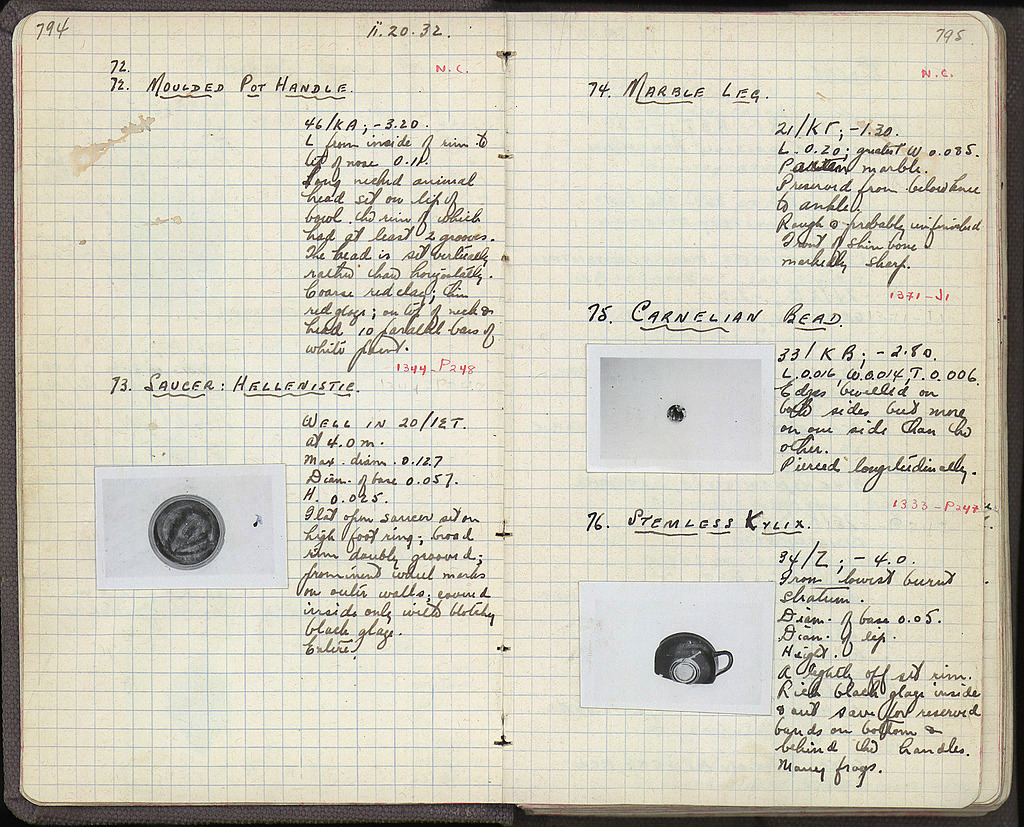 794
ii.20.32.
72.
N.C.
72. MOULDED POT HANDLE.
46/KA; -3.20.
L from inside of rim to
tip of nose 0.11.
Long necked animal
head set on lip of
bowl the rim of which
had at least 2 grooves.
The head is set vertically
rather than horizontally.
Coarse red clay; thin
red glaze; on top of neck &
head 10 parallel bars of
white paint.
1344-P248
73. SAUCER: HELLENISTIC.
WELL IN 20/ΙΣΤ.
at 4.0 m.
Max. diam. 0.127
Diam. of base 0.057.
H. 0.025.
Flat open saucer set on
high foot ring; broad
rim doubly grooved;
prominent wheel marks
on outer walls; covered
inside only with blotchy
black glaze.
Entire.
795
N.C.
74. MARBLE LEG.
21/KΓ; -1.30.
L. 0.20; greatest W 0.085.
marble.
Preserved from below knee
to ankle.
Rough & probably unfinished
Front of shin bone
markedly sharp.
1371-J1
75. CARNELIAN BEAD.
33/KB; -2.80.
L. 0.016, W. 0.014, T. 0.006.
Edges bevelled on
both sides but more
on one side than the
other.
Pierced longitudinally.
1333-P247
76. STEMLESS KYLIX.
34/Z; -4.0.
From lowest burnt
stratum.
Diam. of base 0.05.
Diam. of lip.
Height.
A lightly off set rim.
Rich black glaze inside
& out save for reserved
bands on bottom &
behind the handles.
Many frags.